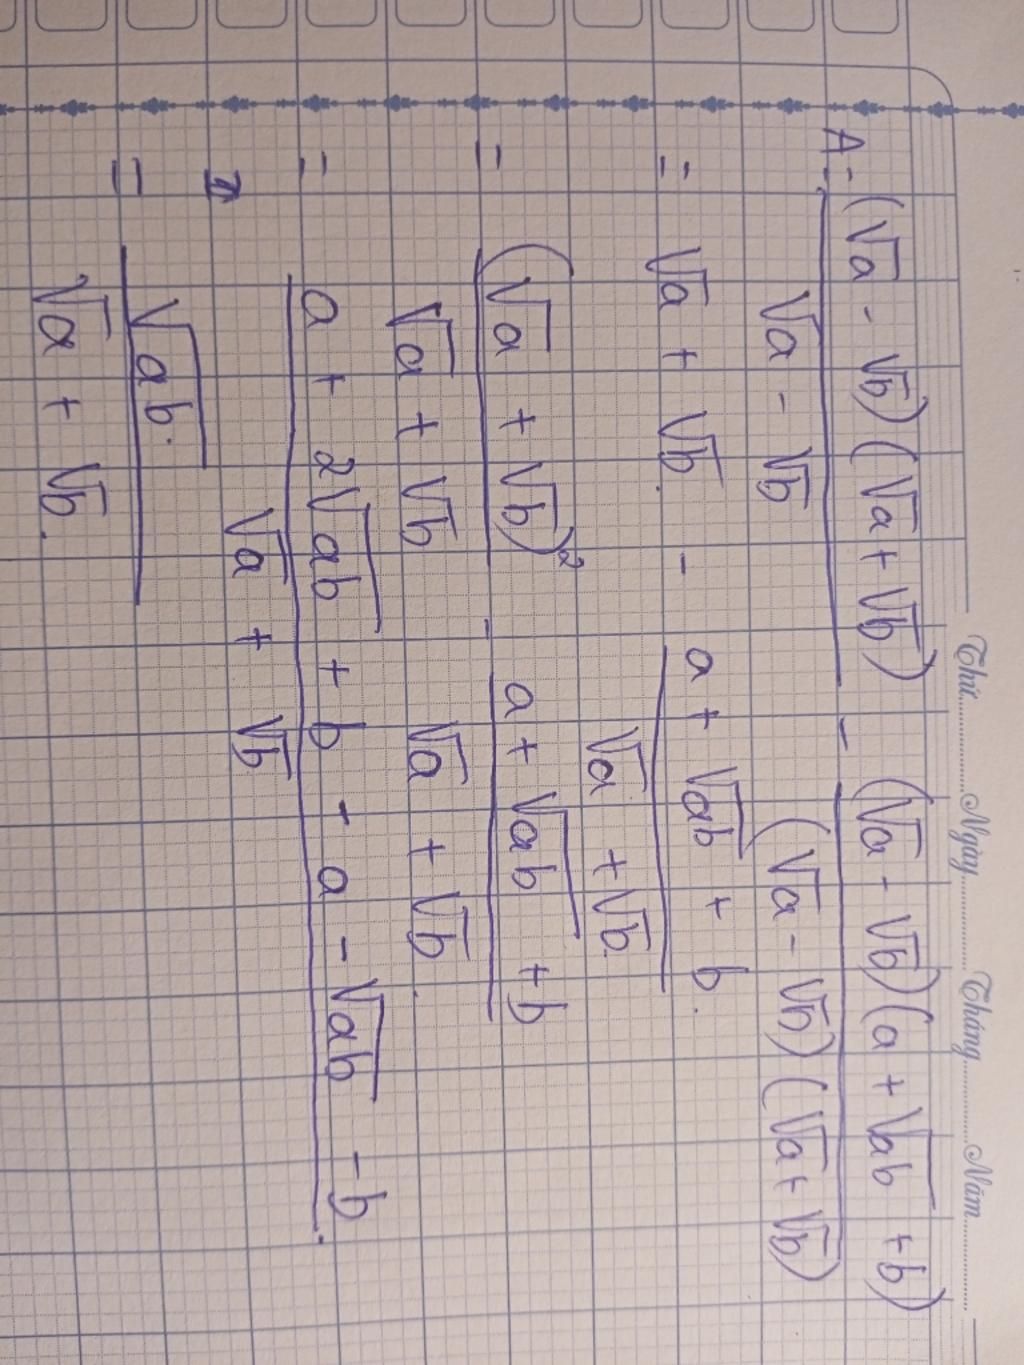 Thứ.......... Ngày.......... Tháng.......... Năm..........
A = ((√a - √b)(√a + √b))/(√a - √b) - ((√a - √b)(a + √ab + b))/((√a - √b)(√a + √b))
= √a + √b - (a + √ab + b)/(√a + √b)
= (√a + √b)²/(√a + √b) - (a + √ab + b)/(√a + √b)
= (a + 2√ab + b - a - √ab - b)/(√a + √b)
= √ab/(√a + √b).